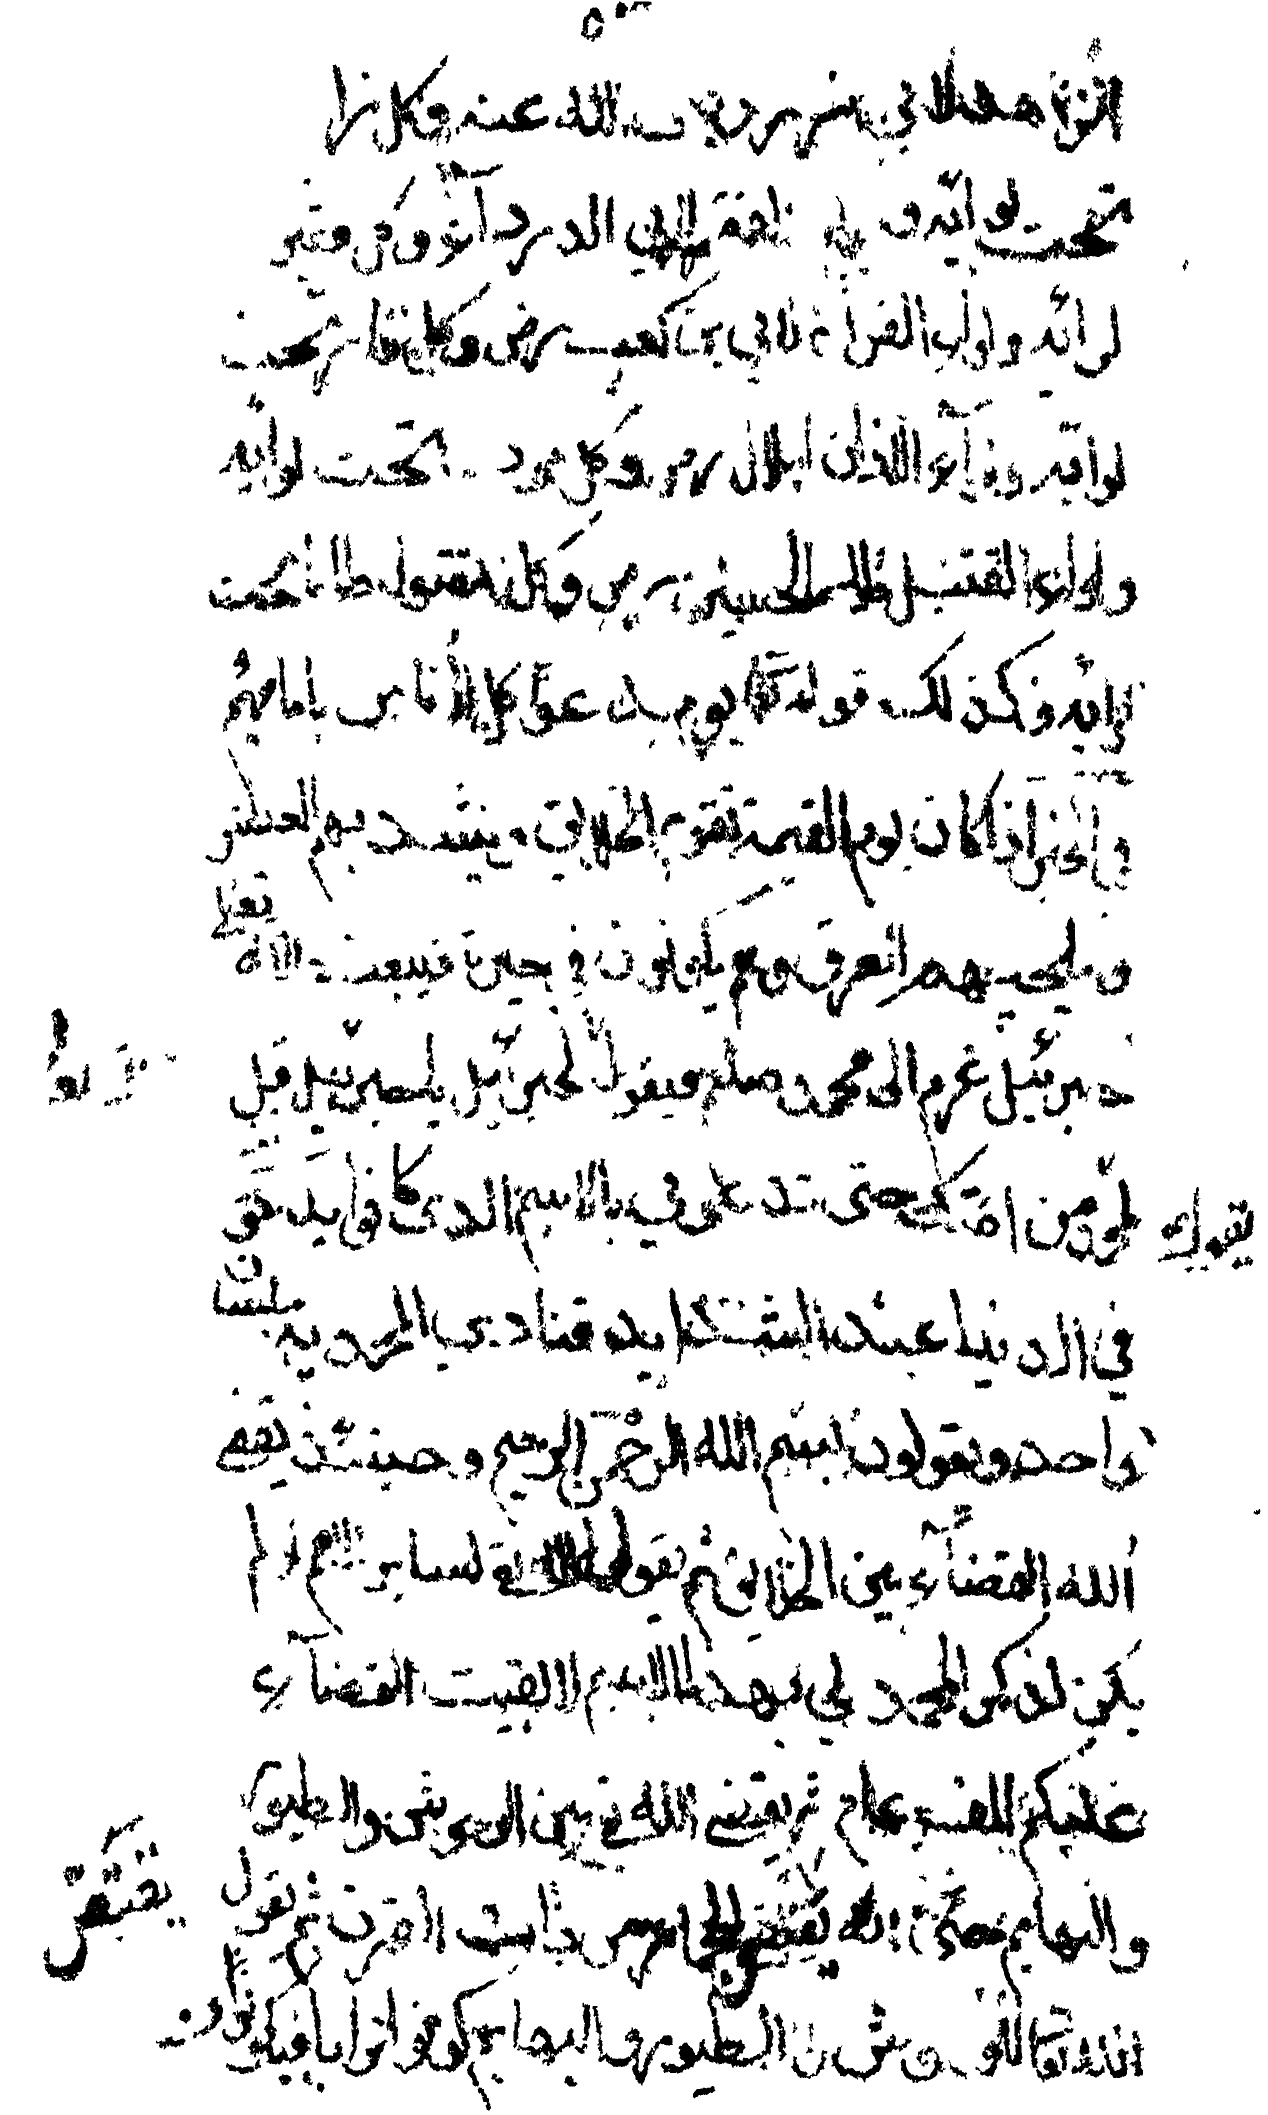 الزهاد لابي ذر رضى الله عنه وكل زا
تحت لوائه ولواء الفقراء لابي الدرداء وكل فقير
لوائه ولواء القراء لابي بن كعب رض وكل قار تحت
لوائه ولواء الاذان لبلال رض وكل موذ تحت لوائه
ولواء القتيل ظلما للحسين رض وكل مقتول ظلما تحت
لوائه وكذلك قوله تعا يوم ندعوا كل اناس بامامهم
والخبر اذا كان يوم القيمة تقوم الخلايق ويشتد بهم العطش
ويلجمهم العرق وهم يكونون في حيرة فيبعث الله تعالى
جبرئيل عم الى محمد صلم فيقول لجبرائيل يا جبرئيل قل
لمحمد من امتك حتى تدعوني بالاسم الذى كانوا يدعون
في الدنيا عند الشدائد فنادى المحمدية بلسان
واحد ويقولون بسم الله الرحمن الرحيم وحينئذ يقضى
الله القضاء بين الخلائق ثم يقول الله تع لساير الامم لو لم
يكن ذكر المحمد لي بهذا الاسم لابقيت القضاء
عليكم الف عام ثم يقضى الله تع بين الوحوش والطيور
والبهايم حتى الله يقتص للجماء من ذات القرن ثم يقول
الله تعا للوحوش والطيور والبهايم كونوا ترابا فيكونون
يقول
يقتص